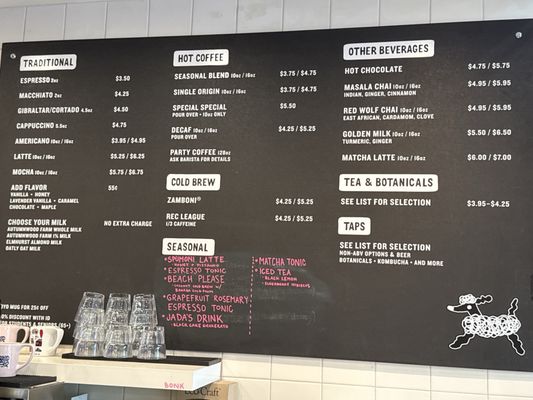 TRADITIONAL
ESPRESSO 2oz $3.50
MACCHIATO 2oz $4.25
GIBRALTAR/CORTADO 4.5oz $4.50
CAPPUCCINO 5.5oz $4.75
AMERICANO 10oz / 16oz $3.95 / $4.95
LATTE 10oz / 16oz $5.25 / $6.25
MOCHA 10oz / 16oz $5.75 / $6.75
ADD FLAVOR 55¢
VANILLA • HONEY
LAVENDER VANILLA • CARAMEL
CHOCOLATE • MAPLE
CHOOSE YOUR MILK NO EXTRA CHARGE
AUTUMNWOOD FARM WHOLE MILK
AUTUMNWOOD FARM 1% MILK
ELMHURST ALMOND MILK
OATLY OAT MILK
YO MUG FOR 25¢ OFF
0% DISCOUNT WITH ID
FOR STUDENTS & SENIORS (65+)
HOT COFFEE
SEASONAL BLEND 10oz / 16oz $3.75 / $4.75
SINGLE ORIGIN 10oz / 16oz $3.75 / $4.75
SPECIAL SPECIAL $5.50
POUR OVER • 10oz ONLY
DECAF 10oz / 16oz $4.25 / $5.25
POUR OVER
PARTY COFFEE 128oz
ASK BARISTA FOR DETAILS
COLD BREW
ZAMBONI® $4.25 / $5.25
REC LEAGUE $4.25 / $5.25
1/3 CAFFEINE
SEASONAL
• SPUMONI LATTE
• ESPRESSO TONIC
• BEACH PLEASE
COCONUT COLD BREW W/
BANANA COLD FOAM
• GRAPEFRUIT ROSEMARY
ESPRESSO TONIC
• JADA'S DRINK
• MATCHA TONIC
• ICED TEA
• BLACK LEMON
OTHER BEVERAGES
HOT CHOCOLATE $4.75 / $5.75
MASALA CHAI 10oz / 16oz $4.95 / $5.95
INDIAN, GINGER, CINNAMON
RED WOLF CHAI 10oz / 16oz $4.95 / $5.95
EAST AFRICAN, CARDAMOM, CLOVE
GOLDEN MILK 10oz / 16oz $5.50 / $6.50
TURMERIC, GINGER
MATCHA LATTE 10oz / 16oz $6.00 / $7.00
TEA & BOTANICALS
SEE LIST FOR SELECTION $3.95–$4.25
TAPS
SEE LIST FOR SELECTION
NON-ABV OPTIONS & BEER
BOTANICALS • KOMBUCHA • AND MORE
BONK
EcoCraft